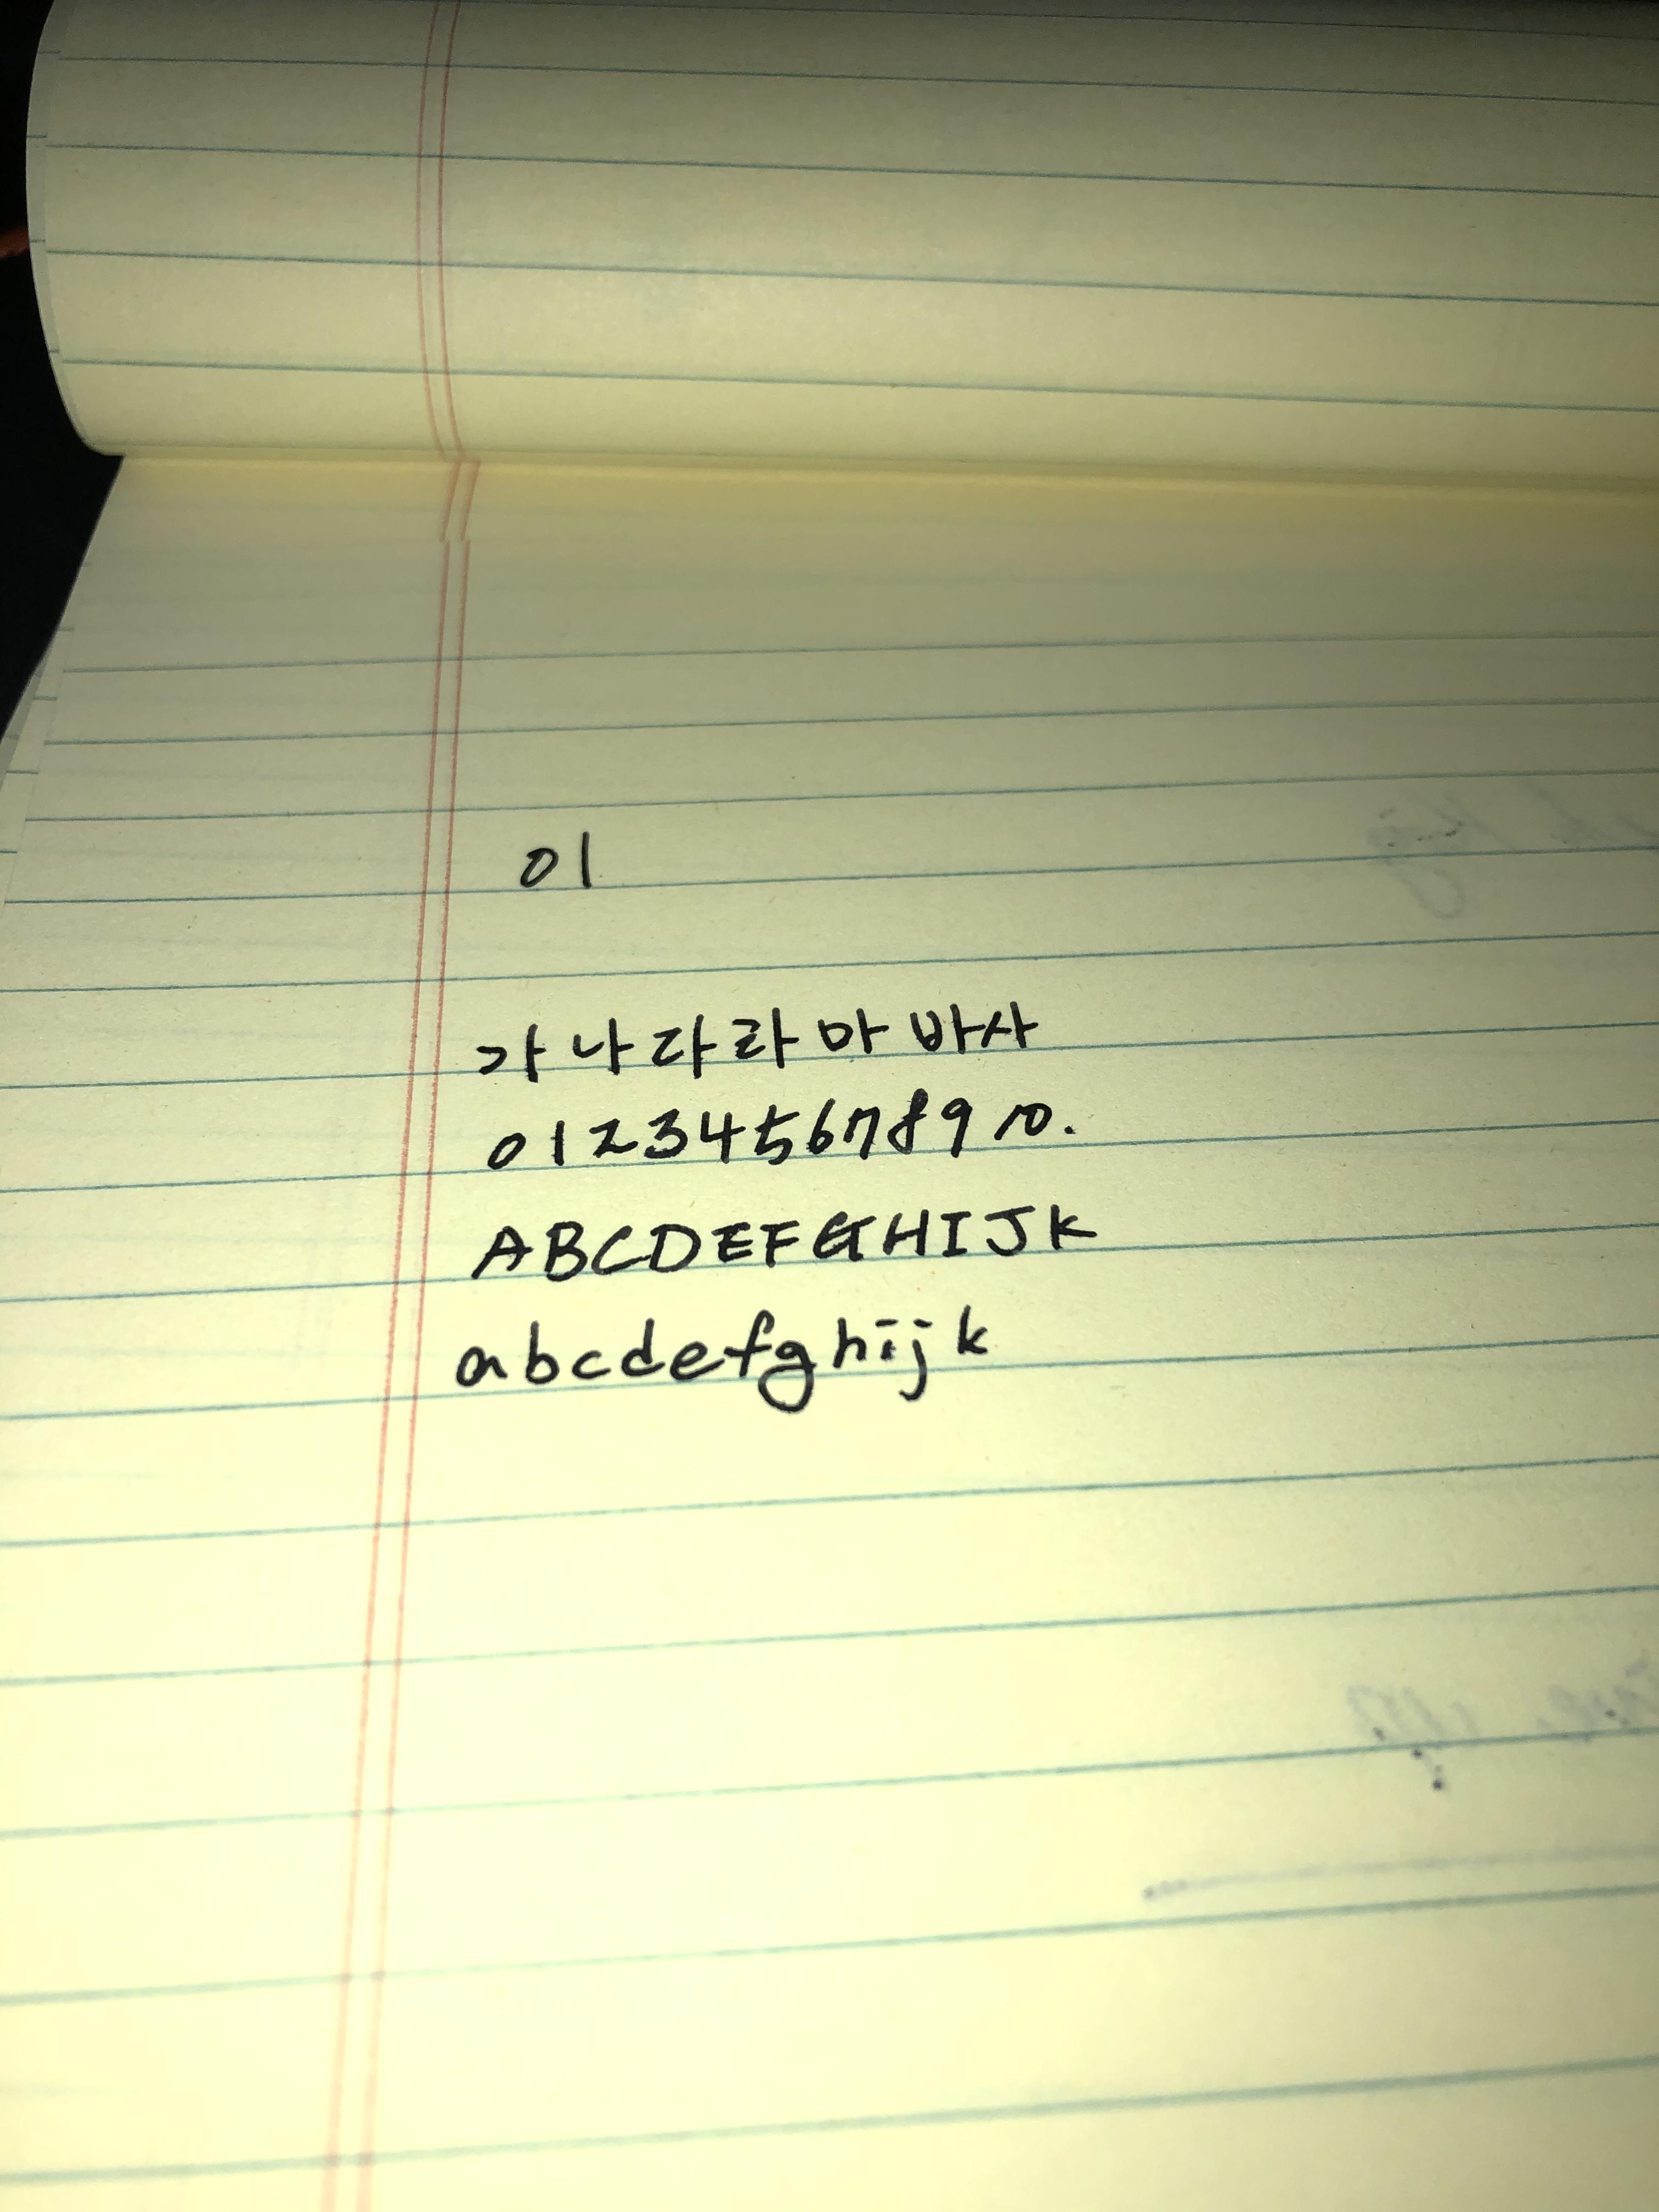 01
가 나 다 라 마 바 사
0 1 2 3 4 5 6 7 8 9 10.
A B C D E F G H I J K
a b c d e f g h i j k